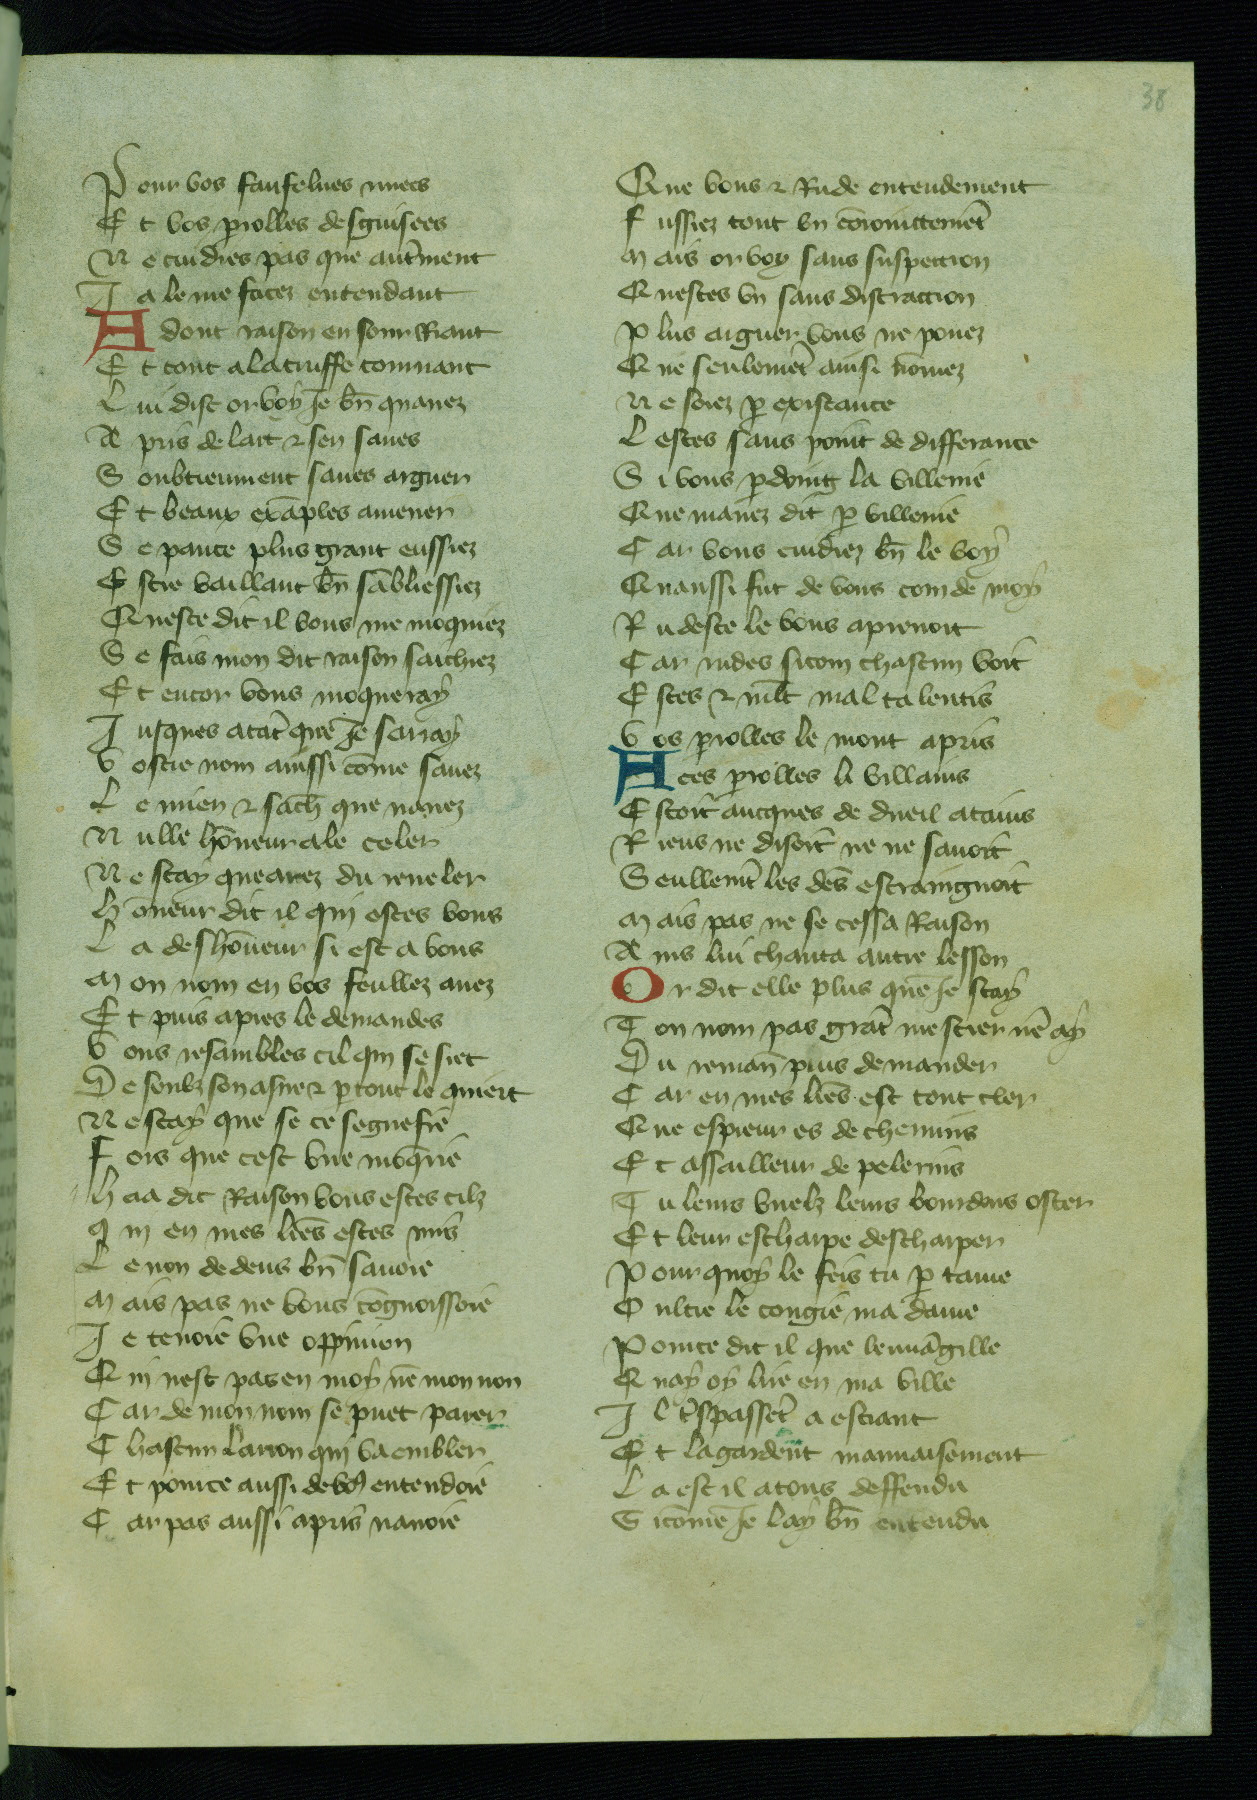 38
Pour vos fanfelues muees
Et vos parolles desguisees
Ne cuidies pas que autrement
Ja le me facez entendant
Adont raison en sourRiant
Et tout a la truffe tornant
Lui dist or voy Je bn̄ quauez
Apris de lart & sen saues
Soubtieument saues arguer
Et beaux exāples amener
Se pance plus grant eussiez
Estre vaillant bn̄ sābliessiez
Queste dit il vous me moquiez
Se fais mon dit raison saichiez
Et encor vous moqueray
Jusques atāt que Je sauray
Vostre nom ainssi cōme sauez
Le mien & sach̄ que nauez
Nulle hōneur a le celer
Ne scay que arez du reueler
hōneur dit il qui estes vous
La deshōneur si est a vous
Mon nom en vos feullez auez
Et puis apres le demandes
Vous resambles cil qui se siet
Desoubz son asne & p̄tout le quiert
Ne scay que se ce segnefie
Fors que cest vne moq̄rie
haa dit Raison vous estes cilz
qui en mes l̄res estes mis
Le non dedens bn̄ sauoie
Mais pas ne vous cōgnoissoie
Je tenoie vne oppinion
Qui nest pas en moy ne mon non
Car de mon nom se puet parer
Chascun larron qui va embler
Et pource aussi de vo9 entendoie
Car pas aussi apris nauoie
Que vous & Rude entendement
Fussiez tout vn cōioinctemēt
Mais or voy sans suspection
Questes vn sans distraction
Plus arguer vous ne pouez
Que seulemēt ainsi nōmez
Ne soiez p̄ existance
Lestes sans point de differance
Si vous p̄doing la villenie
Que mauez dit p̄ villenie
Car vous cuidiez bn̄ le voy
Quaussi fut de vous com de moy
Rudesce le vous aprenoit
Car rudes sicom chascun voit
Estes & mlt̄ mal talentis
Vos p̄rolles le mont apris
A ces p̄rolles li villains
Estoit aucques de dueil atains
Riens ne disoit ne ne sauoit
Seullemt̄ les dēs estraingnoit
Mais pas ne se cessa Raison
Ains lui chanta autre lesson
Or dit elle plus que Je scay
Ton nom pas grāt mestier nē ay
Du remanāt puis demander
Car en mes l̄res est tout cler
Que espieur es de chemins
Et assailleur de pelerins
Tu leurs vuelz leurs bourdons oster
Et leur escharpe descharper
Pour quoy le feis tu p̄ tame
Oultre le congie ma dame
Pource dit il que leuuāgille
Quay oy lire en ma ville
Il tr̄spassēt a esciant
Et la gardent mauuaisement
La est il a tous deffendu
Sicōme Je lay bn̄ entendu